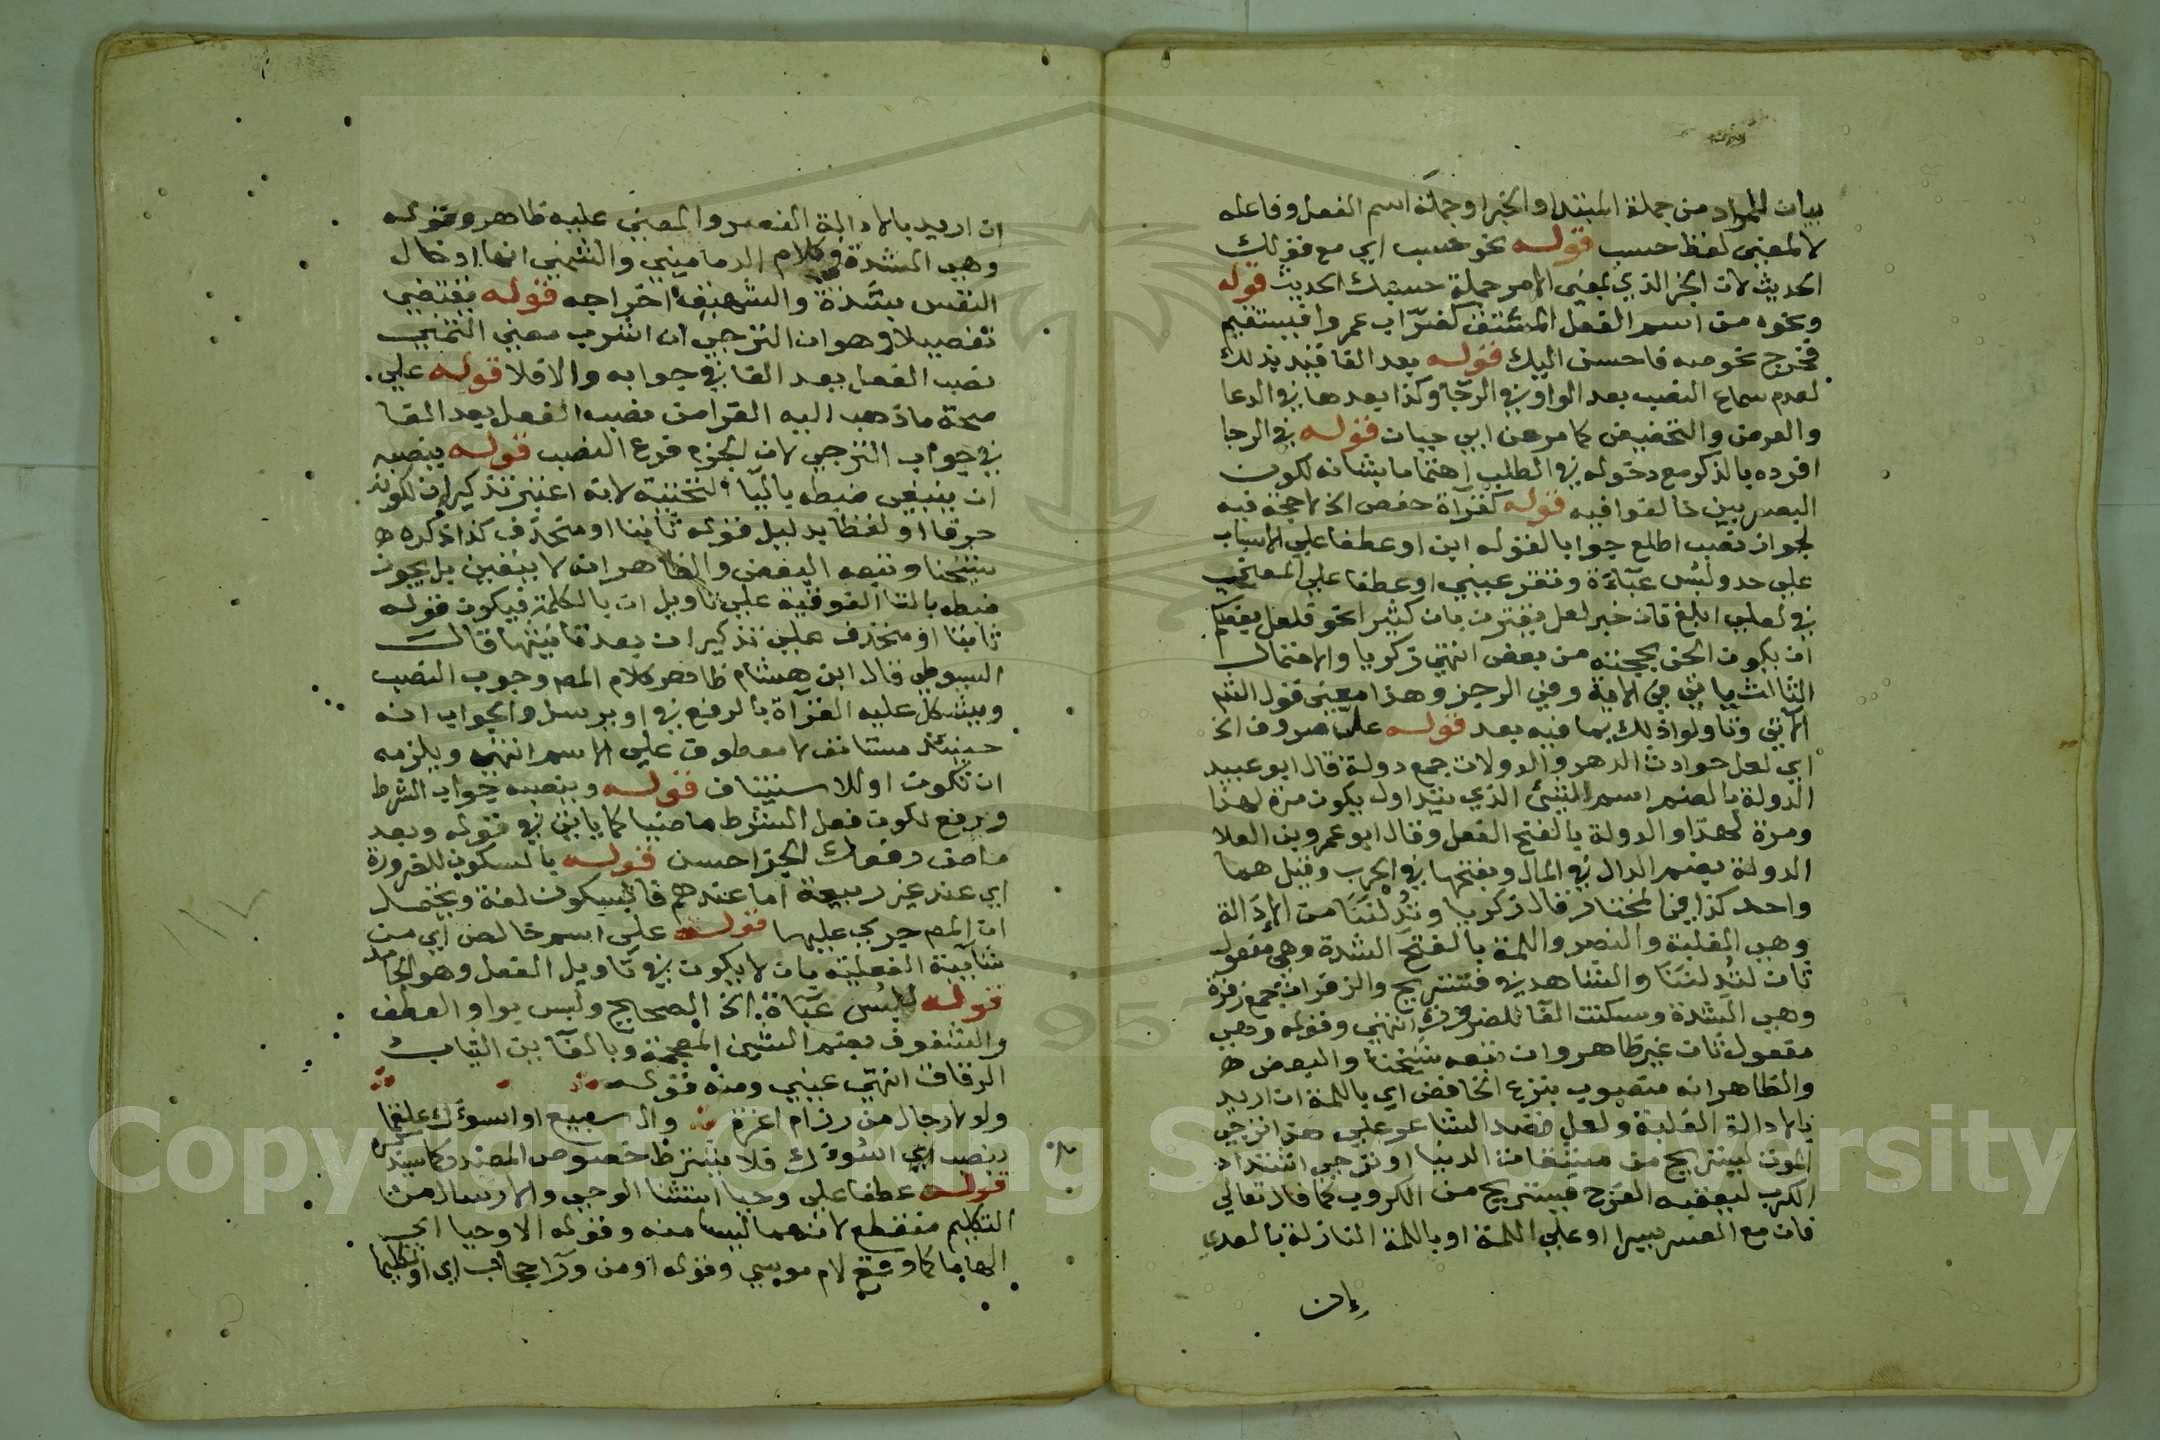 بيان المراد من جملة المبتدا والخبر او جملة اسم الفعل وفاعله
لا لمعنى لفظ حسب قوله نحو حسب اي مع قولك
الحديث لان الجز الذي لمعنى الامر جملة حسبك الحديث قوله
ونحوه من اسم الفعل المشتق كضراب عمروا فيستقيم
فخرج نحو صه فاحسن اليك قوله بعد الفا قيد بذلك
لعدم سماع النصب بعد الواو في الرجا وكذا بعدها في الدعا
والعرض والتحضيض كما مر عن ابي حيان قوله في الرجا
افرده بالذكر مع دخوله في الطلب اهتماما بشانه لكون
البصريين خالفوا فيه قوله كقرآة حفص الخ لا حجة فيه
لجواز نصب اطلع جوابا لقوله ابن او عطفا على الاسباب
على حد ولبس عباءة وتقر عيني او عطفا على المعنى
في لعلي ابلغ فان خبر لعل يقترن بان كثيرا نحو فلعل بعضكم
ان يكون الحن بحجته من بعض انتهى زكريا والاحتمال
الثالث ياتي في الاية وفي الرجز وهذا معنى قول الشم
الآتي وتاولوا ذلك بما فيه بعد قوله عل صروف الخ
اي لعل حوادث الدهر والدولات جمع دولة قال ابو عبيد
الدولة بالضم اسم الشئ الذي يتداول يكون مرة لهذا
ومرة لهذا والدولة بالفتح الفعل وقال ابو عمرو بن العلا
الدولة بضم الدال في المال وبفتحها في الحرب وقيل هما
واحد كذا في المختار قال زكريا وتدلننا من الادالة
وهي الغلبة والنصر واللمة بالفتح الشدة وهي مفعول
ثان لتدلننا والشاهد في فتستريح والزفرات جمع زفرة
وهي الشدة وسكنت الفا للضرورة انتهى وقوله وهي
مفعول ثان غير ظاهر وان تبعه شيخنا والبعض
والظاهر انه منصوب بنزع الخافض اي باللمة ان اريد
بالادالة الغلبة ولعل قصد الشاعر على هذا ترجي
الموت ليستريح من مشقات الدنيا او ترجي اشتداد
الكرب ليعقبه الفرج فيستريح من الكروب كما قال تعالى
فان مع العسر يسرا او على اللمة او باللمة النازلة بالعدي
ان
ان اريد بالادالة النصر والمعنى عليه ظاهر وقوله
وهي الشدة وكلام الدماميني والشمني انها ادخال
النفس بشدة والشهيق اخراجه قوله يقتضي
تفصيلا وهو ان الترجي ان اشرب معنى التمني
نصب الفعل بعد الفا في جوابه والا فلا قوله على
صحة ما ذهب اليه الفرا من نصب الفعل بعد الفا
في جواب الترجي لان الجزم فرع النصب قوله ينصبه
ان ينبغي ضبطه بالياء التحتية لانه اعتبر تذكير ان لكونه
حرفا او لفظا بدليل قوله ثابتا او منحذف كذا ذكره
شيخنا وتبعه البعض والظاهر انه لا يتعين بل يجوز
ضبطه بالتا الفوقية على تاويل ان بالكلمة فيكون قوله
ثابتا او منحذف على تذكير ان بعد تانيثها قال
السيوطي قال ابن هشام ظاهر كلام المصـ وجوب النصب
ويشكل عليه القرآة بالرفع في او يرسل والجواب انه
حينئذ مستانف لا معطوف على الاسم انتهى ويلزمه
ان تكون او للاستيناف قوله وينصبه جواب الشرط
ورفع لكون فعل الشرط ماضيا كما ياتي في قوله وبعد
ماض رفعك الجزا حسن قوله بالسكون للضرورة
اي عند غير ربيعة اما عندهم فالسكون لغة ويحتمل
ان المصـ جرى عليها قوله على اسم خالص اي من
شايبة الفعلية بان لا يكون في تاويل الفعل وهو الجامد
قوله للبس عباة الخ الصحيح ولبس بواو العطف
والشفوف بضم الشين المعجمة وبالفآين الثياب
الرقاق انتهى عيني ومنه قوله
ولولا رجال من رزام اعزة وآل سبيع او اسوءك علقما
بنصب اي اسوءك فلا يشترط خصوص المصدر كما سيذكره
قوله عطفا على وحيا استثنا الوحي والارسال من
التكليم منقطع لانهما ليسا منه وقوله الا وحيا اي
الهاما كما وقع لام موسى وقوله او من وراء حجاب اي او تكليما
Copyright © King Saud University